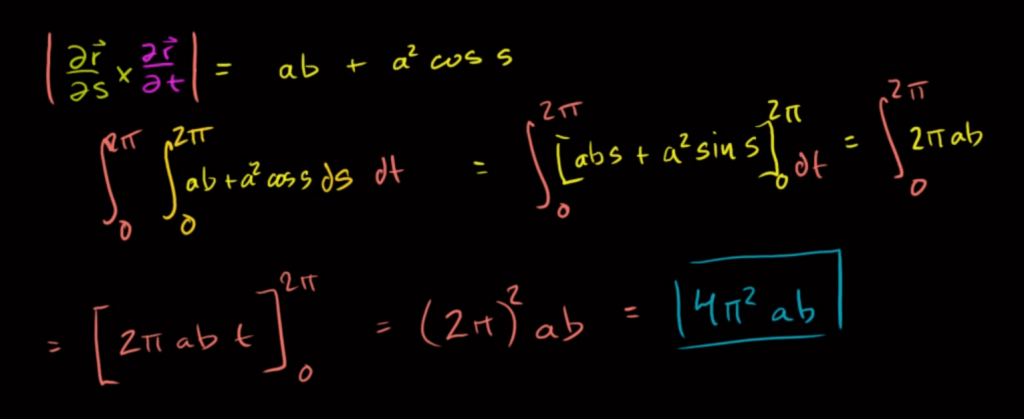 |∂r⃗/∂s × ∂r⃗/∂t| = ab + a² cos s
∫₀^2π ∫₀^2π ab + a² cos s ds dt = ∫₀^2π [abs + a² sin s]₀^2π dt = ∫₀^2π 2π ab
= [2π ab t]₀^2π = (2π)² ab = 4π² ab